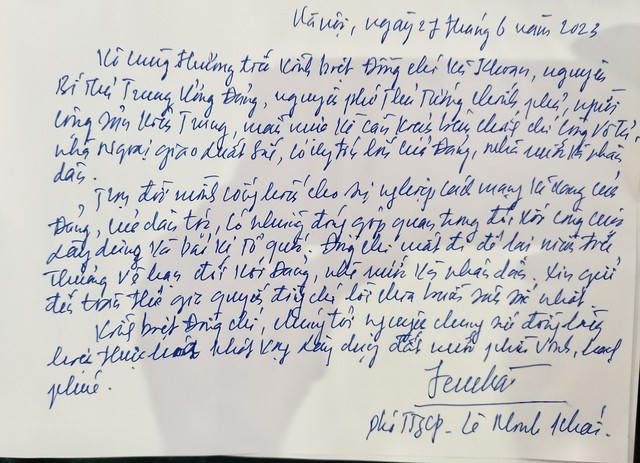 Hà Nội, ngày 27 tháng 6 năm 2023
Vô cùng thương tiếc Vĩnh biệt Đồng chí Vũ Khoan, nguyên
Bí thư Trung ương Đảng, nguyên phó Thủ Tướng chính phủ, người
cộng sản Kiên Trung, mẫu mực về cần kiệm liêm chính chí Công Vô Tư,
nhà ngoại giao xuất sắc, có uy tín lớn của Đảng, nhà nước và nhân
dân.
Trọn đời mình cống hiến cho sự nghiệp cách mạng vẻ vang của
Đảng, của dân tộc, có những đóng góp quan trọng đối với công cuộc
xây dựng và bảo vệ Tổ quốc. Đồng chí mất đi để lại niềm tiếc
Thương vô hạn đối với Đảng, nhà nước và nhân dân. Xin gửi
đến toàn thể gia quyến đồng chí lời chia buồn sâu sắc nhất.
Vĩnh biệt Đồng chí, chúng tôi nguyện chung sức đồng lòng
hiện thực hoá khát vọng xây dựng đất nước phồn vinh, hạnh
phúc.
phó TTgCP - Lê Minh Khái.